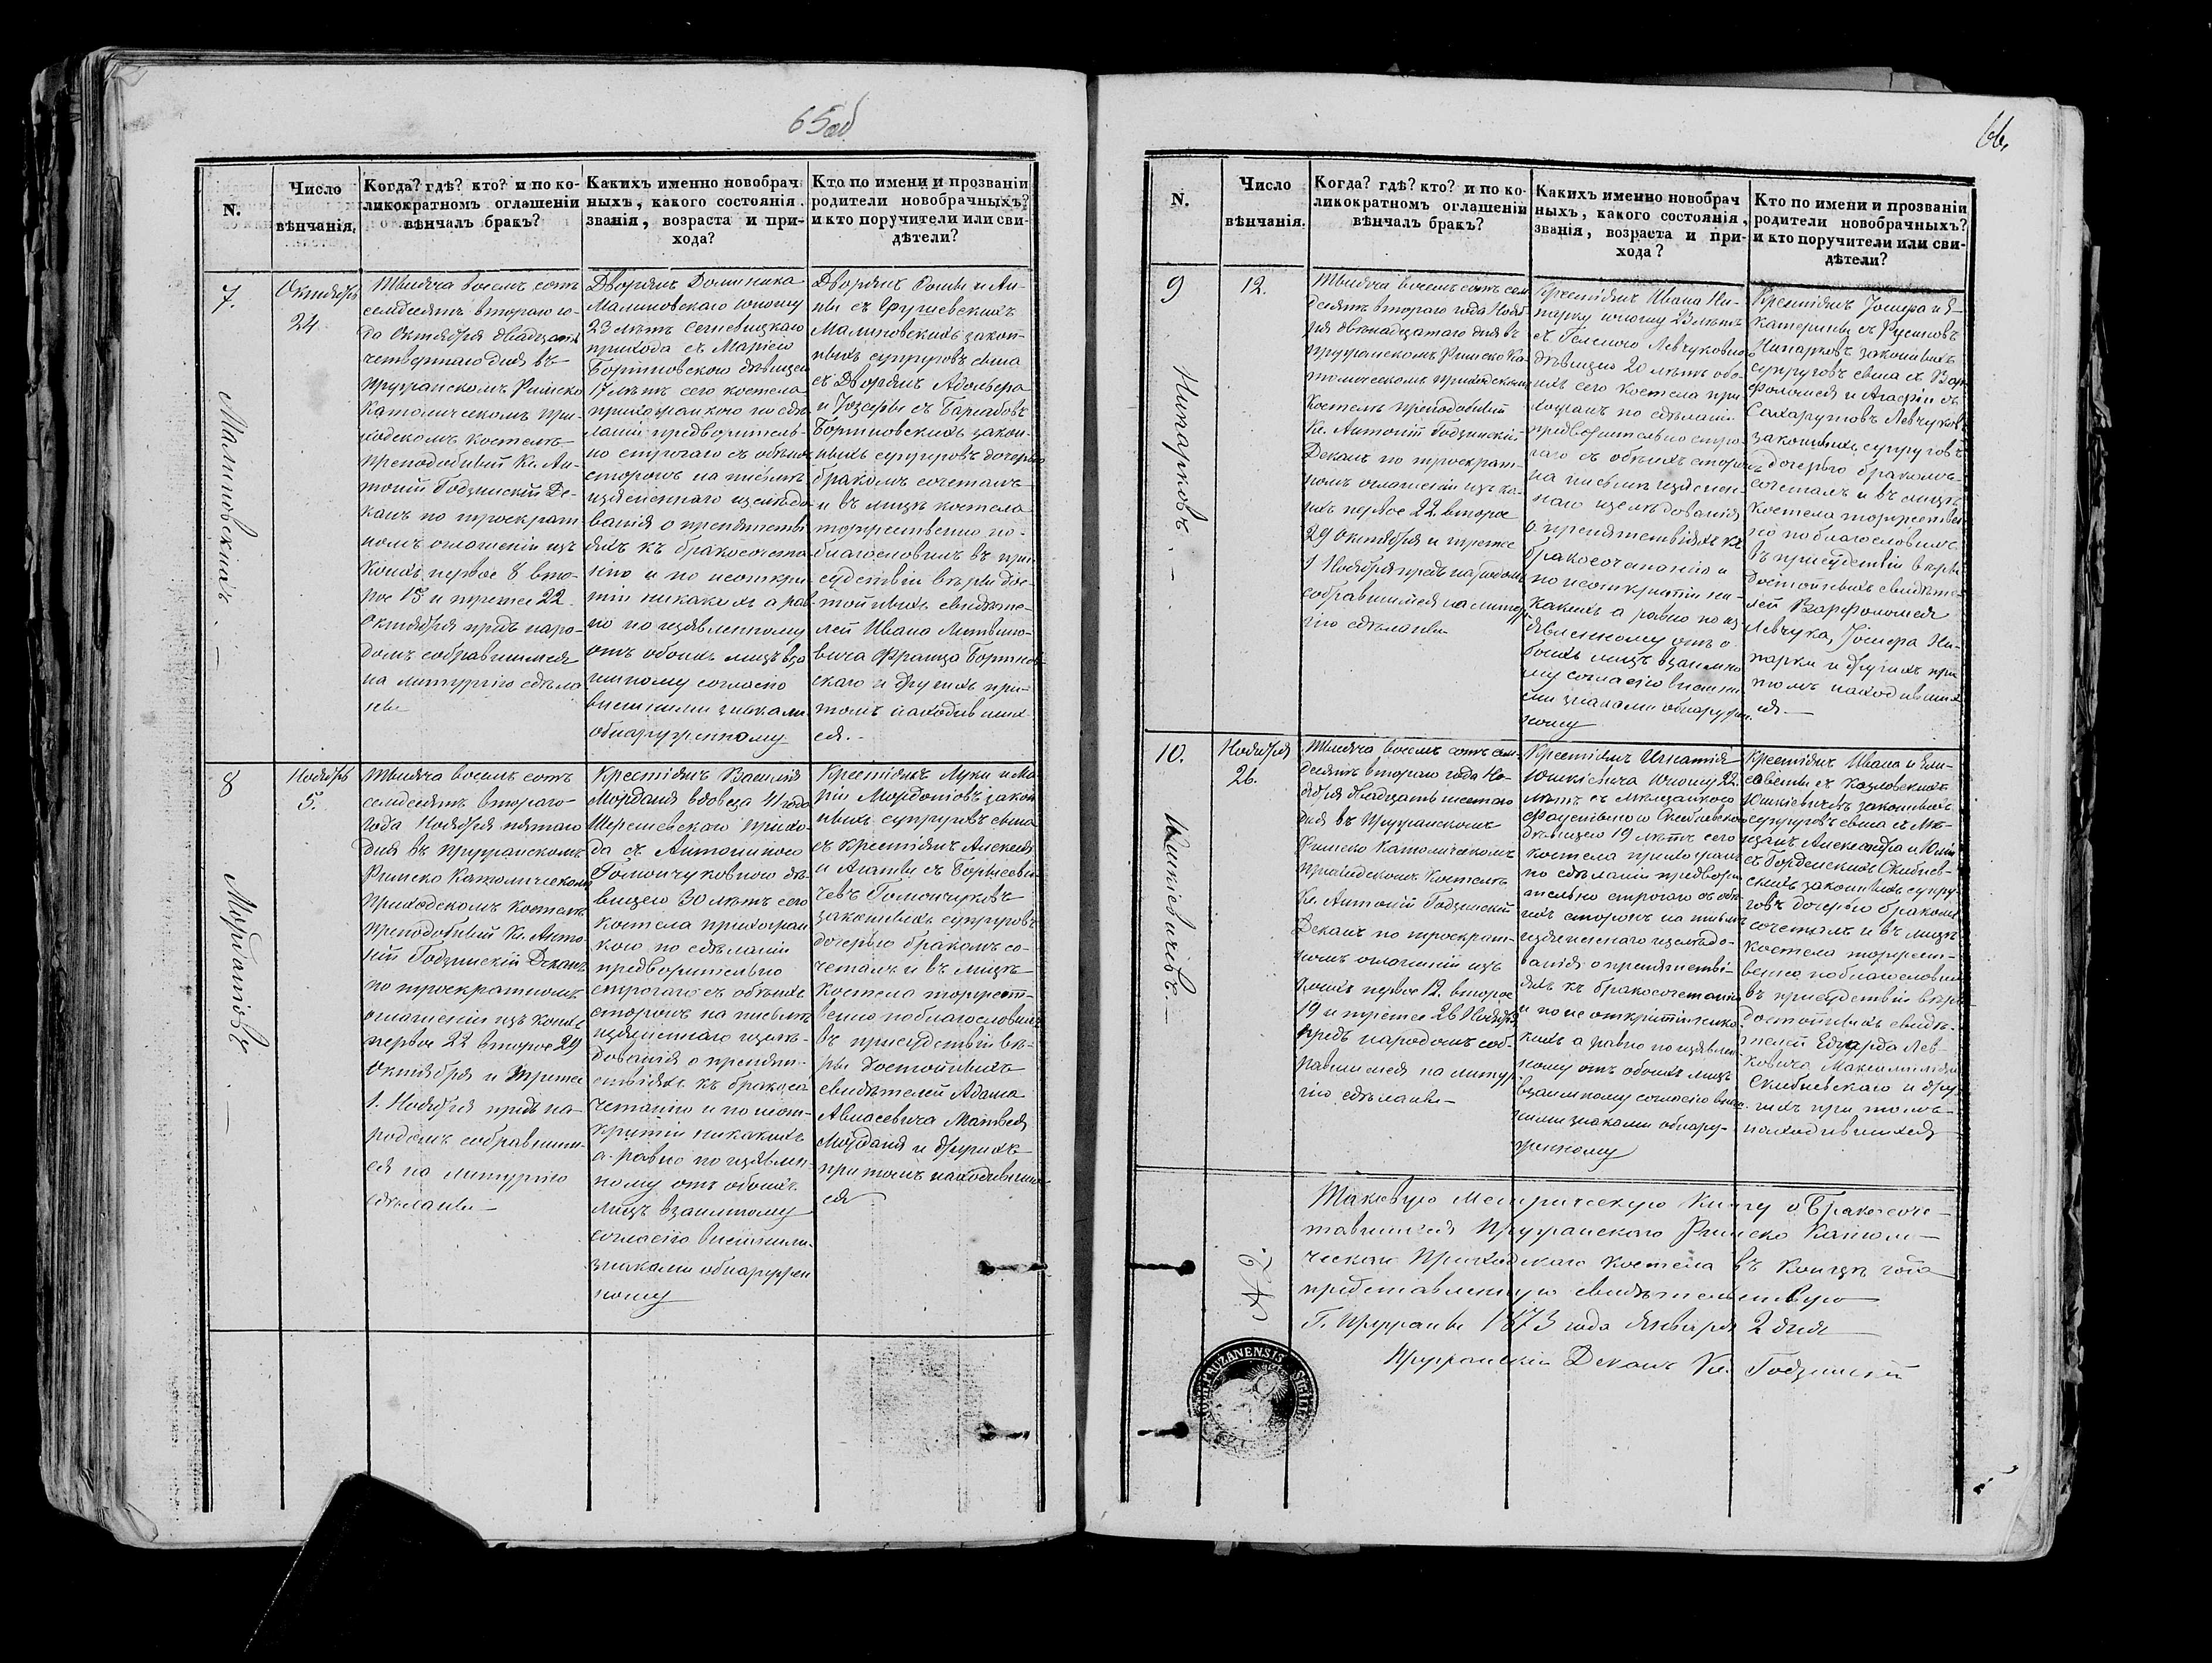 65об
N.
Число
вѣнчанія.
Когда? гдѣ? кто? и по ко-
ликократномъ оглашеніи
вѣнчалъ бракъ?
Какихъ именно новобрач
ныхъ, какого состоянія.
званія, возраста и при-
хода?
Кто по имени и прозванію
родители новобрачныхъ?
и кто поручители или сви-
дѣтели?
7.
Малиновскихъ. —
Октября
24
Тысяча восемь сотъ
семдесятъ втораго го-
да Октября двадцать
четвертаго дня въ
Пружанскомъ Римско
Католическомъ При-
ходскомъ костелѣ
преподобный Кс. Ан-
тоній Годзинскій Де-
канъ по троекрат
номъ оглашеніи изъ
коихъ первое 8 вто-
рое 15 и третее 22
Октября предъ наро-
домъ собравшимся
на литургію сдѣла
ны
Дворянъ Доминика
Малиновскаго юношу
23 лѣтъ Сегневицкаго
прихода съ Маріею
Бортновскою дѣвицею
17 лѣтъ сего костела
прихожанкою по сдѣ
ланіи предворитель-
но строгаго съ обѣихъ
сторонъ на письмѣ
изъясненнаго изслѣдо
ванія о препятстві
яхъ къ бракосочета
нію и по неоткры
тіи никакихъ а рав-
но по изъявленному
отъ обоихъ лицъ вза
имному согласію
внешними знаками
обнаруженному
Дворянъ Фомы и Ан-
ны съ Грушевскихъ
Малиновскихъ закон-
ныхъ супруговъ сына
съ Дворянъ Адольфа
и Іозефы съ
Бортновскихъ закон-
ныхъ супруговъ дочерью
бракомъ сочеталъ
и въ лицѣ костела
торжественно по-
благословилъ въ при
судствіи вѣры дос-
тойныхъ свидѣте-
лей Ивана Литвино-
вича Франца Бортнов-
скаго и другихъ при
томъ находивших
ся. —
8
Морданіовъ. —
Ноября
5.
Тысяча восемь сотъ
семдесятъ втораго
года Ноября пятаго
дня въ Пружанскомъ
Римско Католическомъ
Приходскомъ Костелѣ
преподобный Кс. Анто-
ній Годзинскій Деканъ
по троекратномъ
оглашеніи изъ коихъ
первое 22 второе 29
Октября и третее
1. Ноября предъ на-
родомъ собравшим
ся на литургію
сдѣланы —
Крестіянъ Василія
Морданя вдовца 41 года
Шерешевскаго прихо-
да съ Антониною
Гомончуковною дѣ
вицею 30 лѣтъ сего
костела прихожан
кою по сдѣланіи
предворительно
строгаго съ обѣихъ
сторонъ на письмѣ
изъясненнаго изслѣ-
дованія о препят-
ствіяхъ къ бракосо
четанію и по неот-
крытіи никакихъ
а равно по изъявлен-
ному отъ обоихъ
лицъ взаимному
согласію внешними
знаками обнаружен
ному
Крестіянъ Луки и Ма
ріи Морданіовъ закон
ныхъ супруговъ сына
съ крестіянъ Алексея
и Агаты съ Борысеви-
чевъ Гомончуковъ
законныхъ супруговъ
дочерью бракомъ со-
четалъ и въ лицѣ
Костела торжест-
венно поблагословилъ
въ присудствіи вѣ-
ры достойныхъ
свидѣтелей Адама
Авласевича Матвея
Морданя и другихъ
при томъ находивших
ся
66.
N.
Число
вѣнчанія.
Когда? гдѣ? кто? и по ко-
ликократномъ оглашеніи
вѣнчалъ бракъ?
Какихъ именно новобрач
ныхъ, какого состоянія,
званія, возраста и при-
хода?
Кто по имени и прозванію
родители новобрачныхъ?
и кто поручители или сви-
дѣтели?
9
Нипарковъ. —
12.
Тысяча восемь сотъ сем
десятъ втораго года Нояб
ря двенадцатаго дня въ
пружанскомъ Римско Ка-
толическомъ приходскомъ
Костелѣ преподобный
Кс. Антоній Годзинскій
Деканъ по троекрат-
номъ оглашеніи изъ ко-
ихъ первое 22. второе
29 Октября и третее
1 Ноября предъ народомъ
собравшимся на литур-
гію сдѣланы
Крестіянъ Ивана Ни-
парку юношу 23 лѣтъ
съ Геленою Левчуковною
дѣвицею 20 лѣтъ обо-
ихъ сего костела при
хожанъ по сдѣланіи
предворительно стро-
гаго съ обѣихъ сторонъ
на письмѣ изъяснен-
наго изслѣдованія
о препятствіяхъ къ
бракосочетанію и
по неоткрытіи ни-
какихъ а равно по из
ъявленному отъ о
боихъ лицъ взаимно
му согласію внешни
ми знаками обнаружен
ному
Крестіянъ Іосифа и Е-
катерины съ Русиновъ
Нипарковъ законныхъ
супруговъ сына съ Вар
фоломея и Агафіи съ
Сахарутовъ Левчуковъ
законныхъ супруговъ
дочерью бракомъ
сочеталъ и въ лицѣ
костела торжествен
но поблагословилъ
въ присудствіи вѣры
достойныхъ свидѣте-
лей Варфоломея
Левчука, Іосифа Ни-
парки и другихъ при
томъ находивших
ся. —
10.
Юшкіевичевъ. —
Ноября
26.
Тысяча восемь сотъ сем-
десятъ втораго года Но-
ября двадцать шестаго
дня въ Пружанскомъ
Римско Католическомъ
Приходскомъ Костелѣ
Кс. Антоній Годзинскій
Деканъ по троекрат-
номъ оглашеніи изъ
коихъ первое 12. второе
19 и третее 26 Ноября
предъ народомъ соб-
равшимся на литур
гію сдѣланы —
Крестіянъ Игнатія
Юшкіевича юношу 22.
лѣтъ съ мѣщанкою
Фаустыною Скибневскою
дѣвицею 19 лѣтъ сего
костела прихожанъ
по сдѣланіи предвори
тельно строгаго съ обѣ
ихъ сторонъ на письмѣ
изъясненнаго изслѣдо-
ванія о препятстві-
яхъ къ бракосочетанію
и по не открытіи ника
кихъ а равно по изъявлен
ному отъ обоихъ лицъ
взаимному согласію внеш
ними знаками обнару-
женному
Крестіянъ Ивана и Ели-
саветы съ Казловскихъ
Юшкіевичевъ законныхъ
супруговъ сына съ Мѣ-
щанъ Александра и Юліи
съ Скибнев-
скихъ законныхъ супру-
говъ дочерью бракомъ
сочеталъ и въ лицѣ
костела торжест-
венно поблагословилъ
въ присудствіи вѣры
достойныхъ свидѣ-
телей Едуарда Лев-
ковича Максимиліяна
Скибневскаго и дру-
гихъ при томъ
находившихся
Таковую Метрическую Книгу о Бракосоче-
тавшихся Пружанскаго Римско Католи-
ческаго Приходскаго костела въ концѣ года
представленную свидѣтельствую
Г. Пружаны 1873 года Января 2 дня
Пружанскій Деканъ Кс. Годзинскій